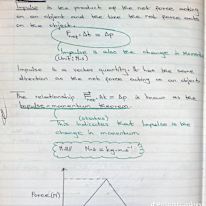 Impulse is the product of the net force acting
on an object and the time the net force acts
on the object.
Fnet·Δt = Δp
Impulse is also the change in momentum
(Unit: N·s)
Impulse is a vector quantity & has the same
direction as the net force acting on an object
The relationship Fnet·Δt = Δp is known as the
Impulse-momentum theorem.
(states)
This indicates that impulse is the
change in momentum
N·s = kg·m·s⁻¹
Force (N)